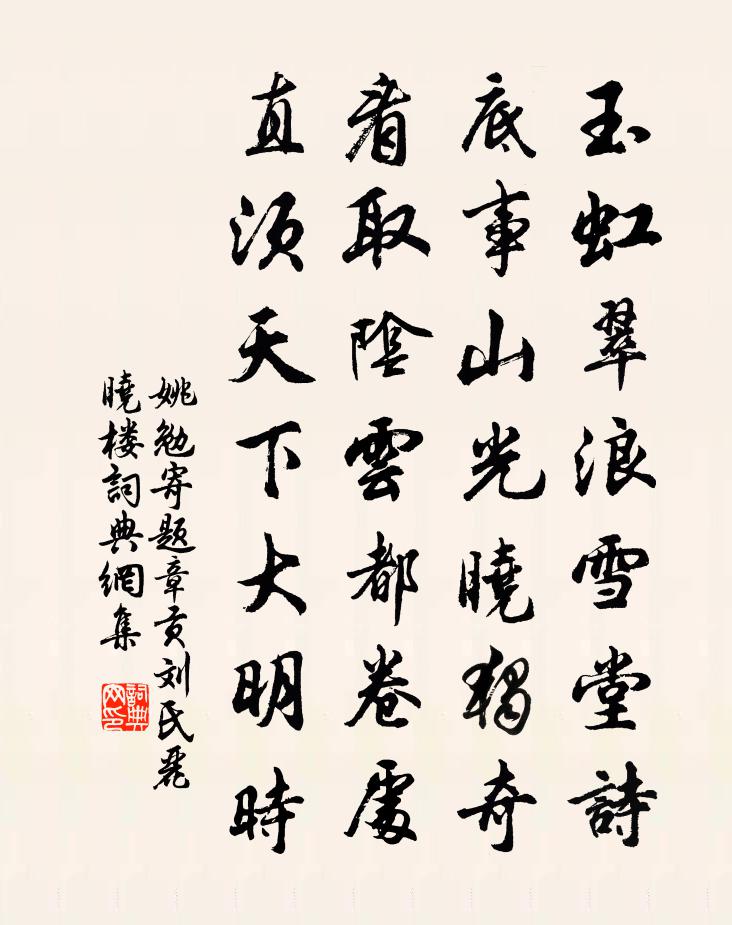 玉虹翠浪雪堂詩
底事山光曉獨奇
看取陰雲都卷處
直須天下大明時
姚勉寄題章贡刘氏麗
曉楼詞典網集
詞典网印